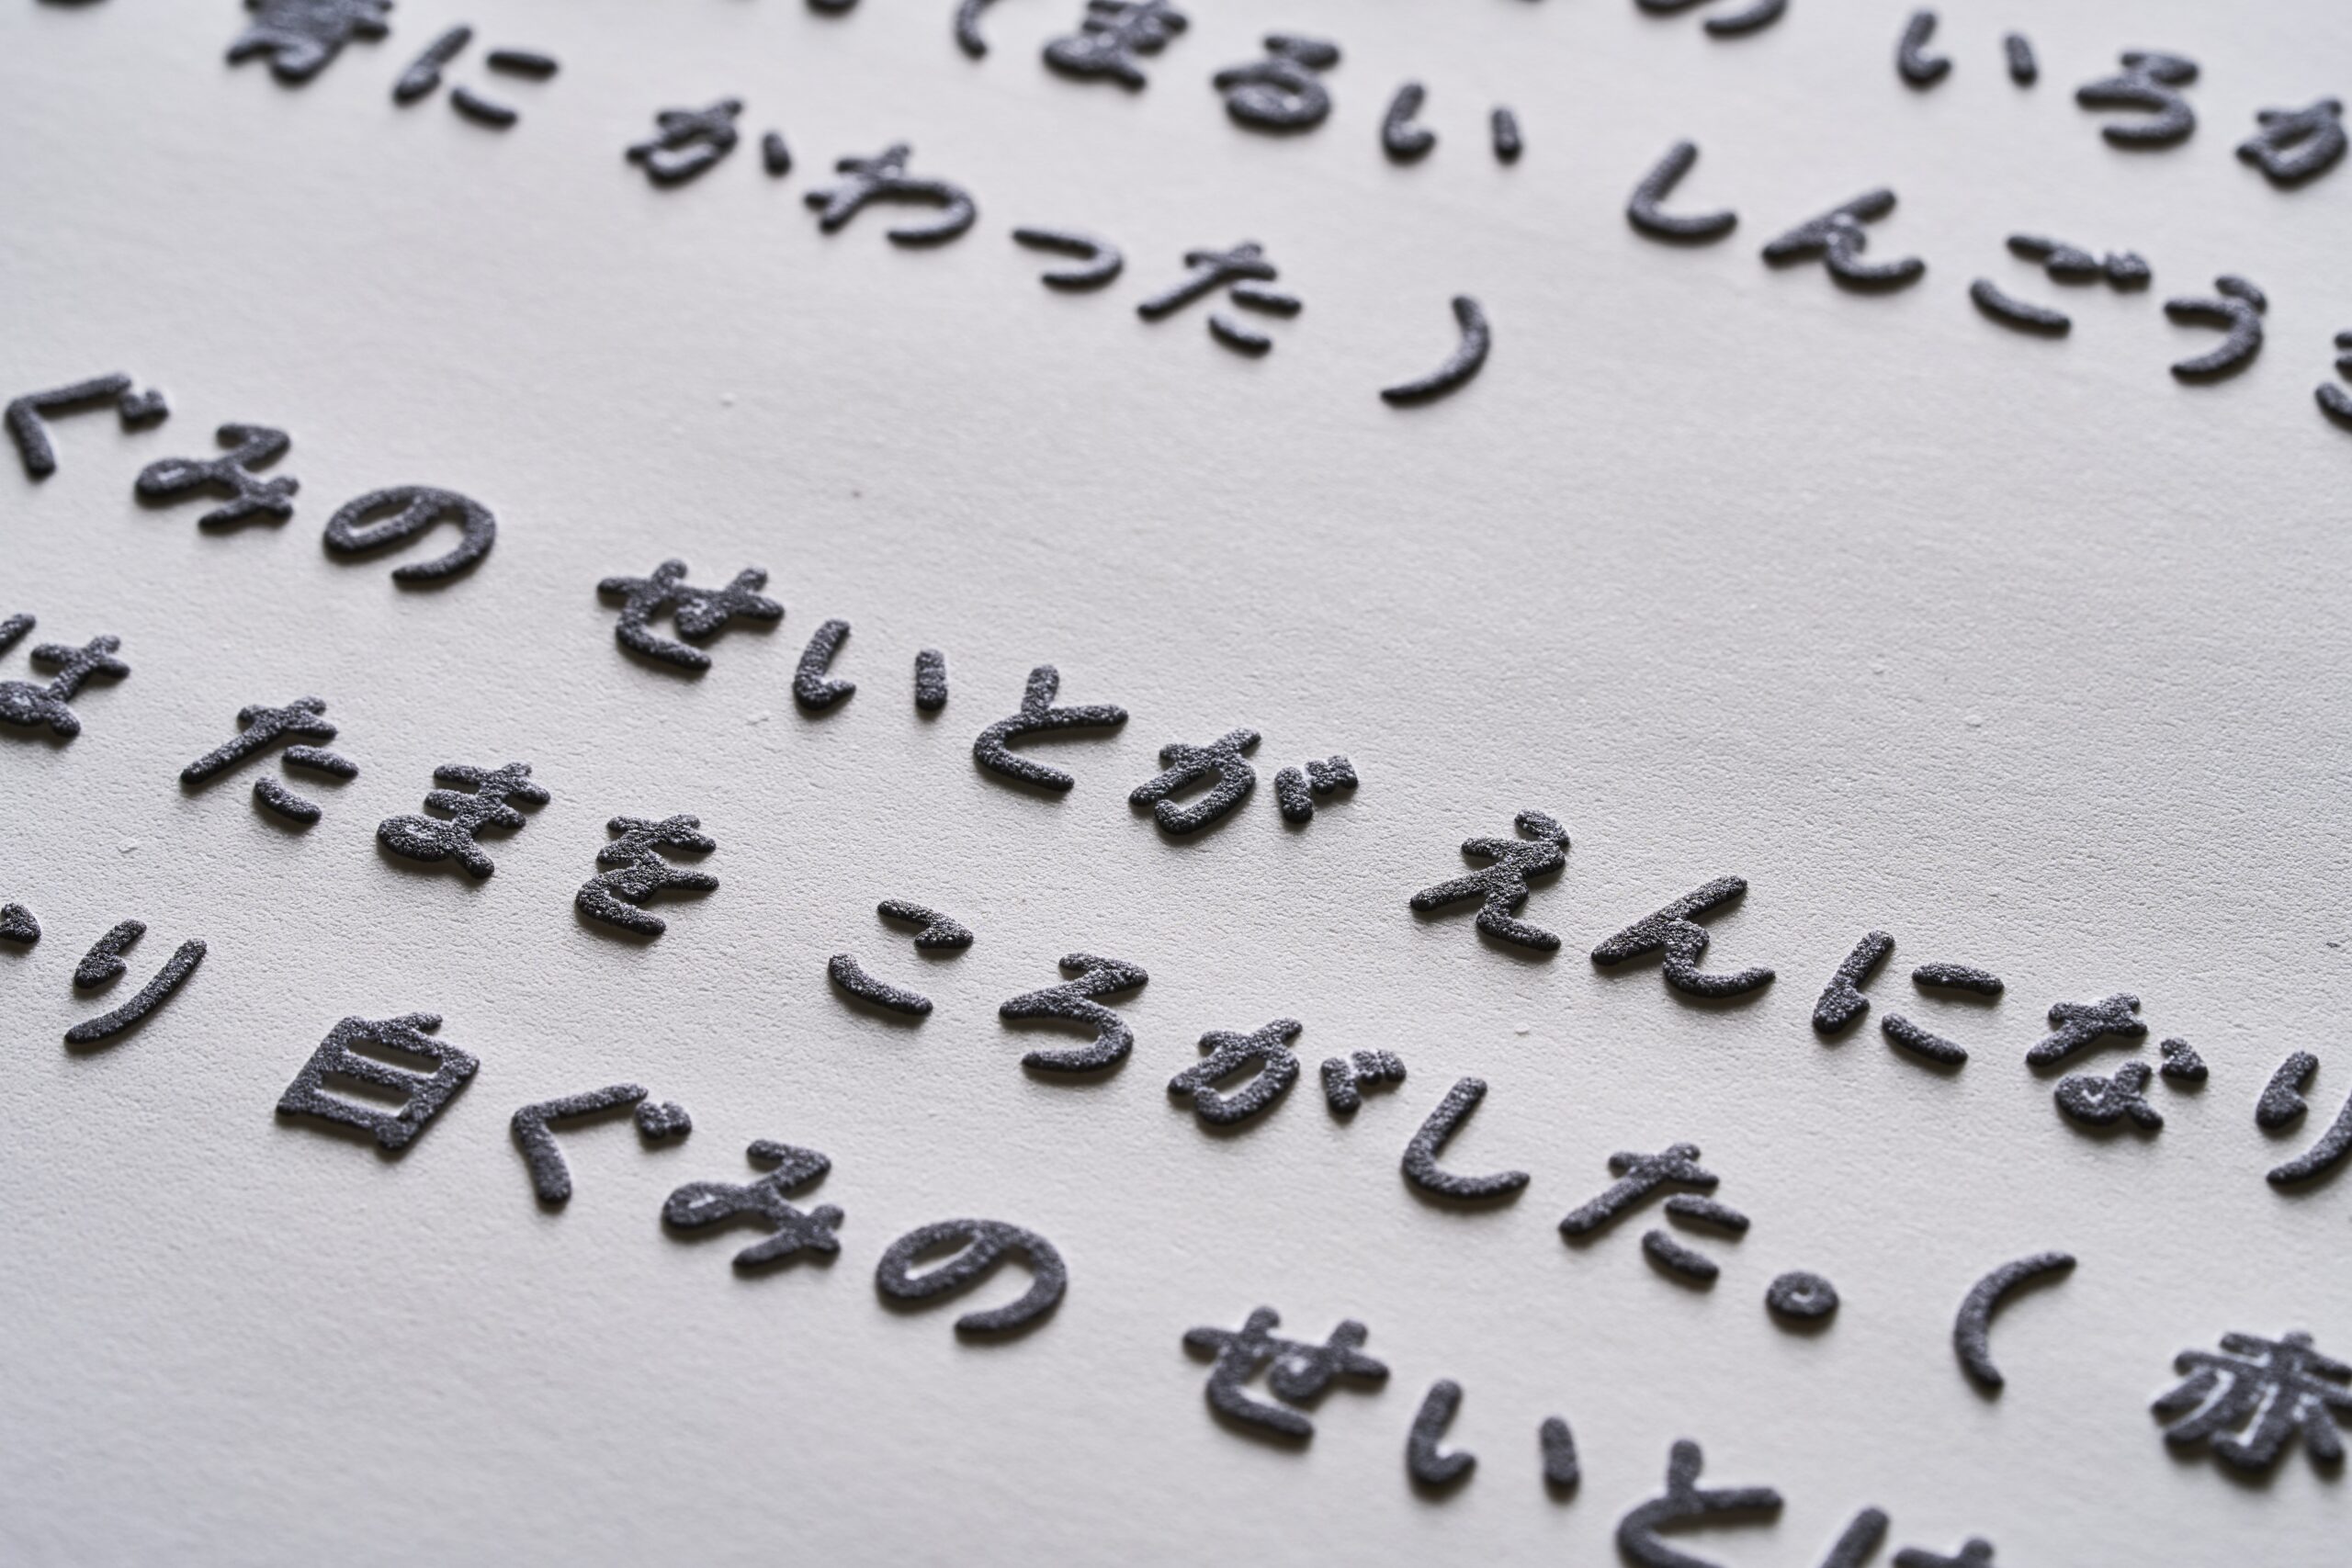 の いろ
（まるい しんごう
青に かわった ）
ぐみの せいとが えんになり
は たまを ころがした。（ 赤
り 白ぐみの せいとは